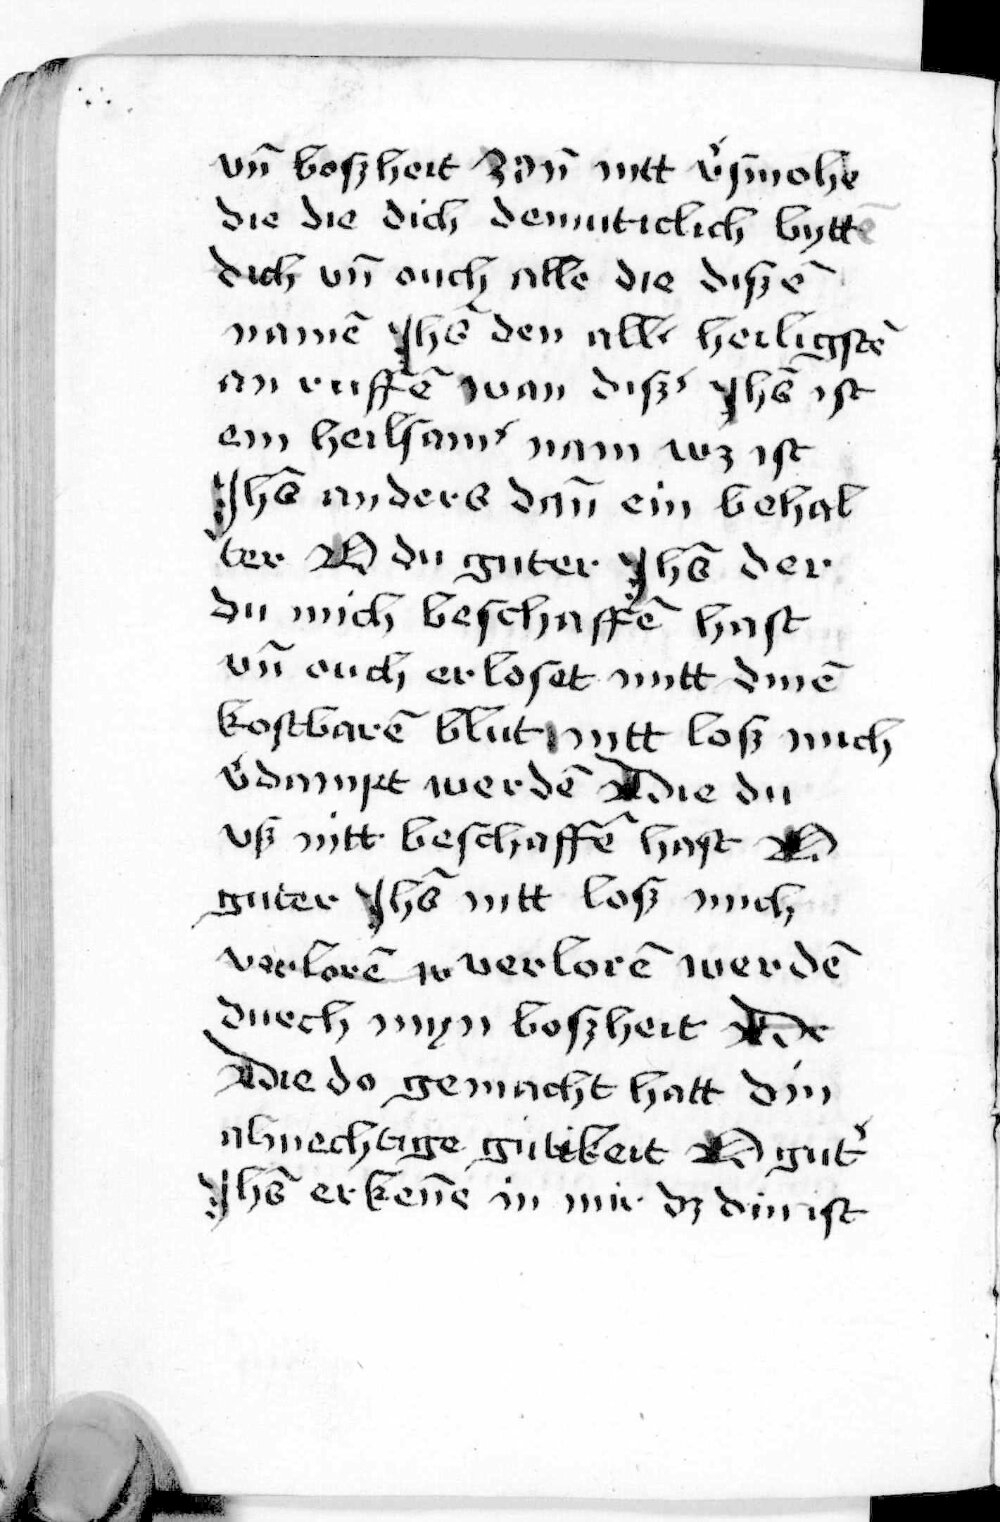 vn̄ boſzheit Dan̄ nitt v͛ſmohe
die die dich demuticlich byttē
dich vn̄ ouch alle die diſzē
namē Jhs̄ den all͛ heiligſtē
an ruffē wan diſz͛ Jhs̄ iſt
ein heilſam͛ nam wz iſt
Jhs̄ anders dan̄ ein behal
ter O du guter Jhs̄ der
du mich beſchaffē haſt
vn̄ ouch erloſet mitt dinē
koſtbarē blut nitt loſz mich
v͛dampt werdē die du
vß nitt beſchaffē haſt O
guter Jhs̄ nitt loſz mich
verlorē verlorē werdē
durch myn boſzheit
die do gemacht hatt din
almechtige gütikeit O gut͛
Jhs̄ erken̄e in mir dz din iſt